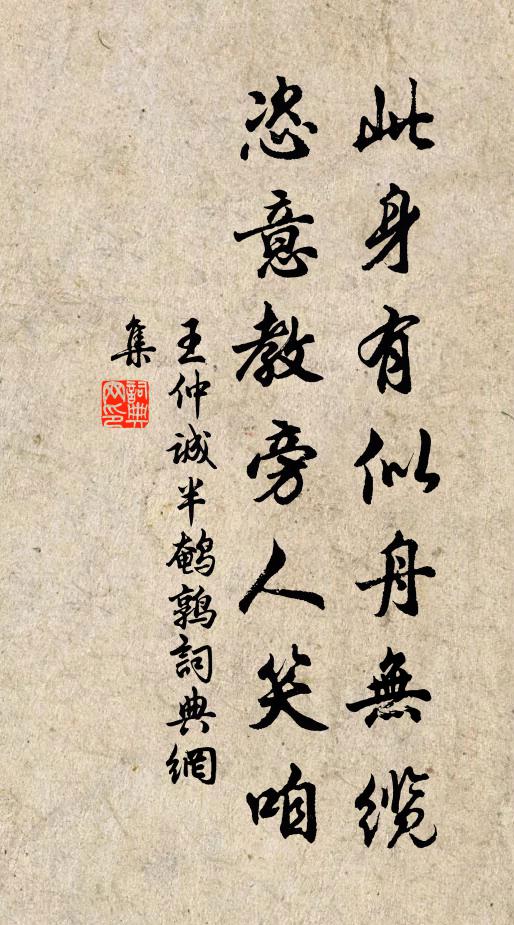 此身有似舟無缆
恣意教旁人笑咱
王仲诚半鹌鹑詞典網
集
詞典网印